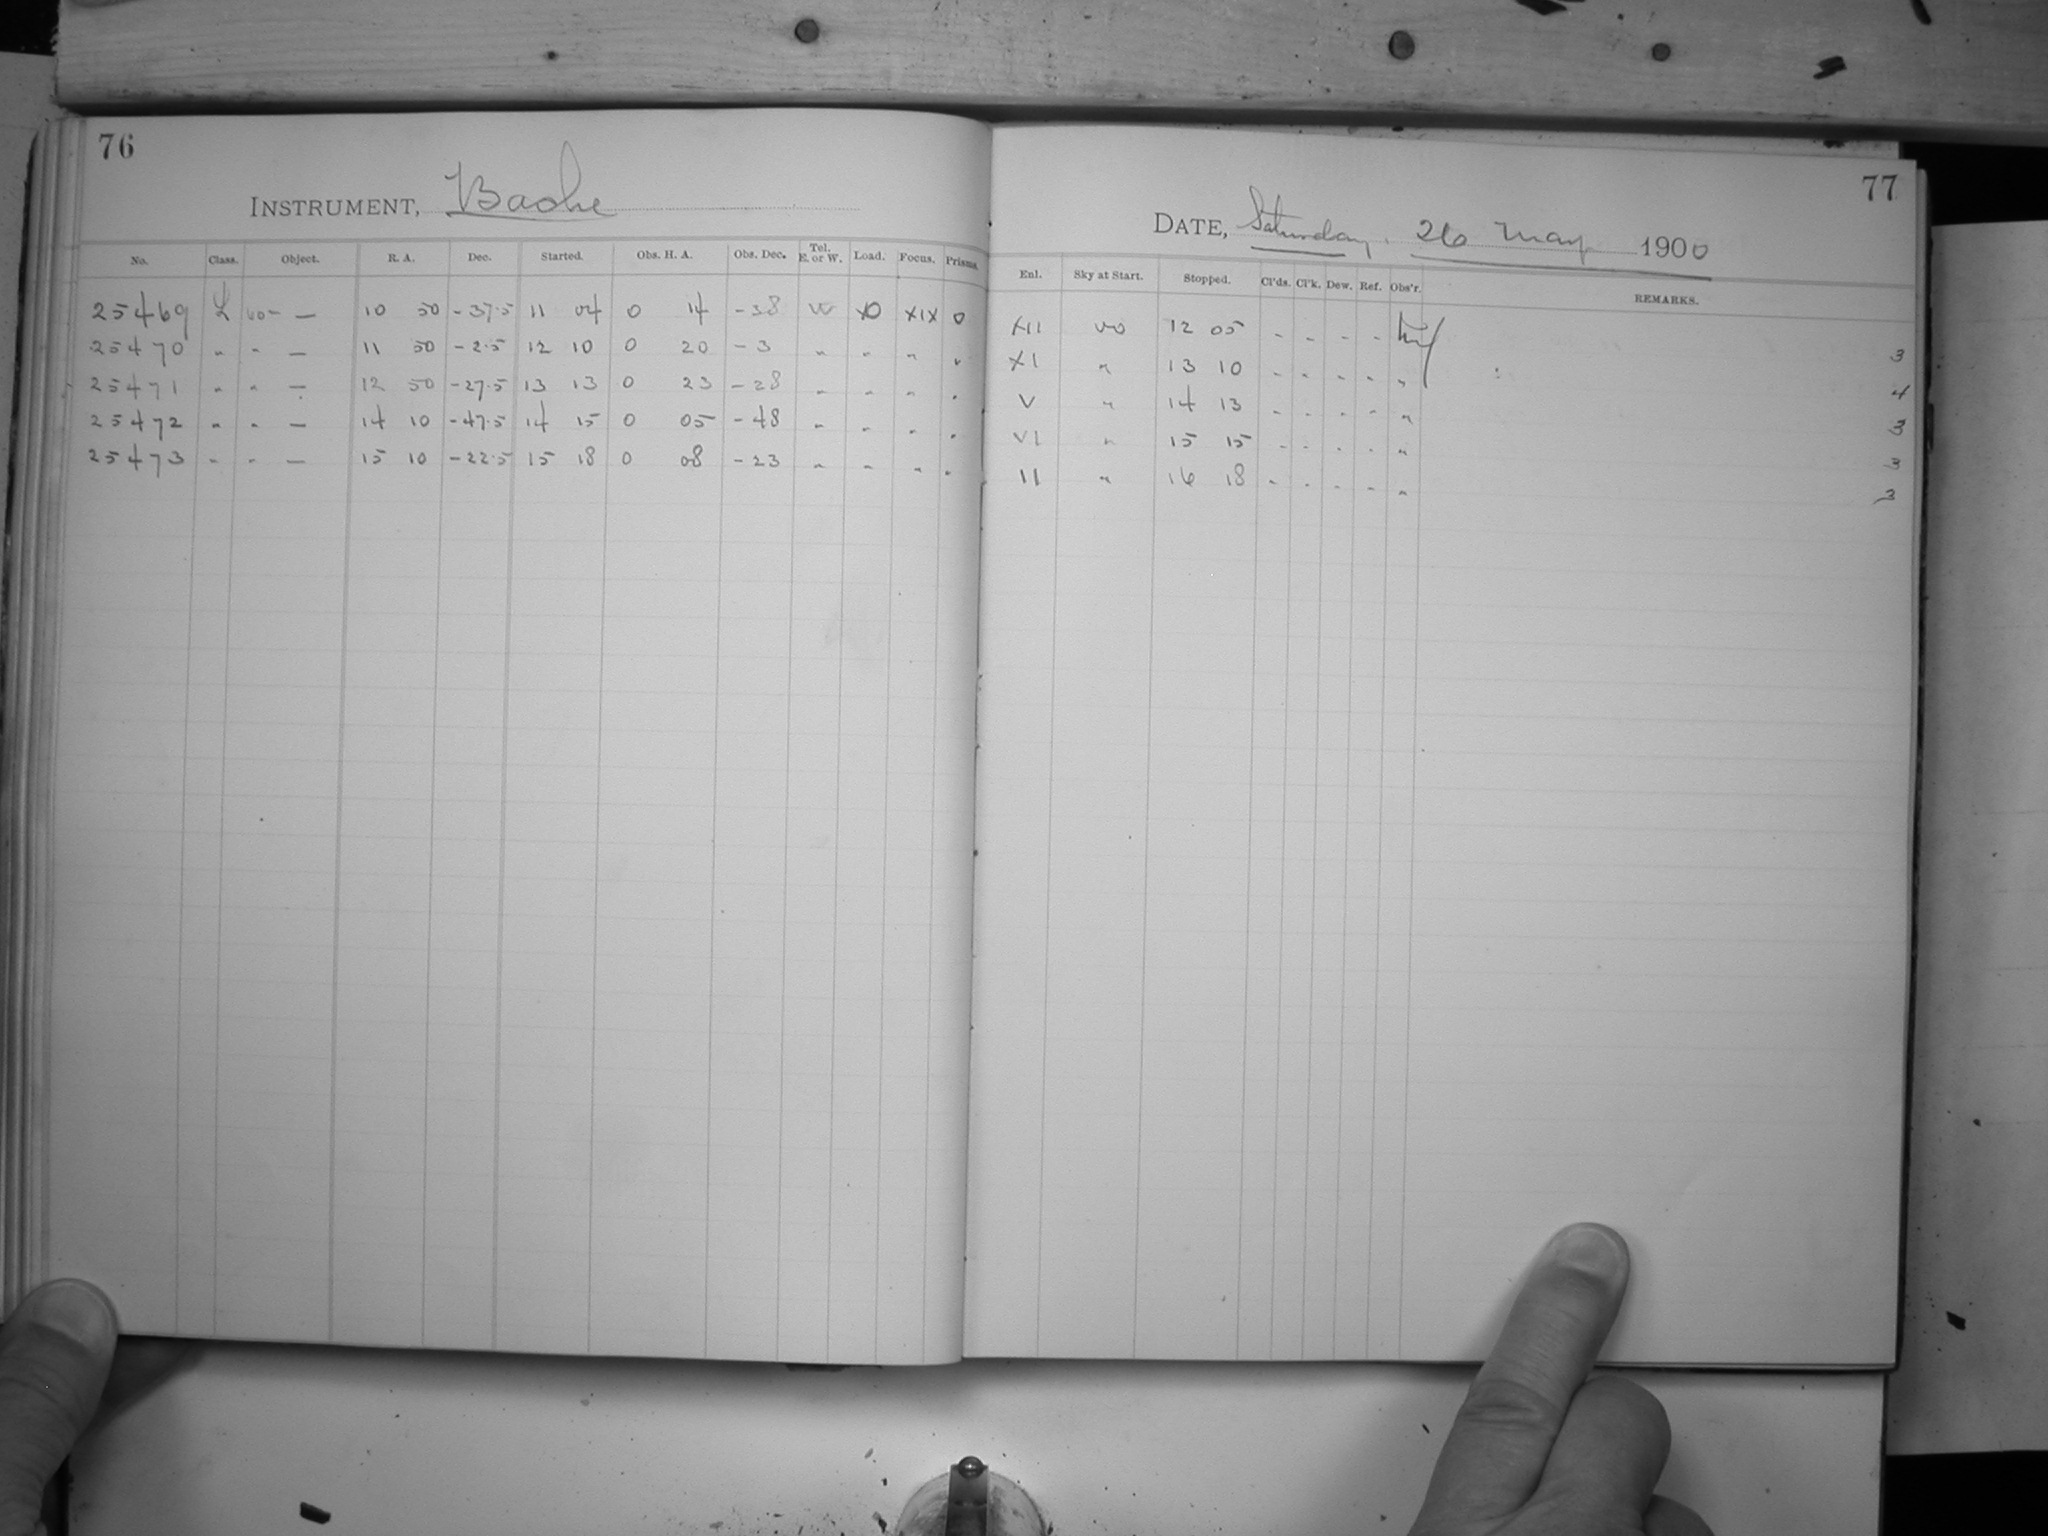 76
INSTRUMENT, Bache
No. Class. Object. R. A. Dec. Started. Obs. H. A. Obs. Dec. Tel. E. or W. Load. Focus. Prisms.
25469 L — 10 50 -37.5 11 04 0 14 -38 W XIX 0
25470 " " — 11 50 -2.5 12 10 0 20 -3 " " " "
25471 " " — 12 50 -27.5 13 13 0 23 -28 " " " "
25472 " " — 14 10 -47.5 14 15 0 05 -48 " " " "
25473 " " — 15 10 -22.5 15 18 0 08 -23 " " " "
77
DATE, Saturday, 26 May 1900
Enl. Sky at Start. Stopped. Cl'ds. Cl'k. Dew. Ref. Obs'r. REMARKS.
XII 12 05 - - - - 3
XI " 13 10 - - - - " 4
V " 14 13 - - - - " 3
VI " 15 15 - - - - " 3
II " 16 18 - - - - " 3